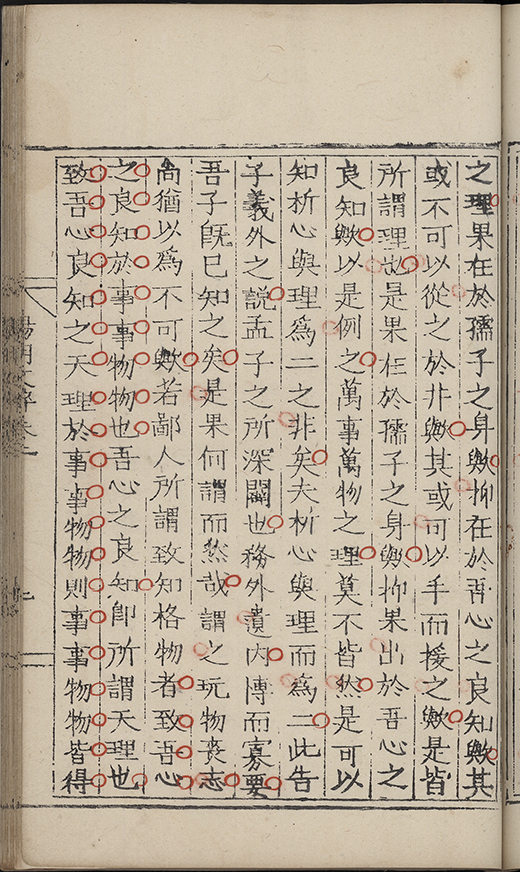 之理果在於孺子之身歟抑在於吾心之良知歟其
或不可以從之於井歟其或可以手而援之歟是皆
所謂理也是果在於孺子之身歟抑果出於吾心之
良知歟以是例之萬事萬物之理莫不皆然是可以
知析心與理爲二之非矣夫析心與理而爲二此告
子義外之說孟子之所深闢也務外遺內博而寡要
吾子旣已知之矣是果何謂而然哉謂之玩物喪志
尚猶以爲不可歟若鄙人所謂致知格物者致吾心
之良知於事事物物也吾心之良知卽所謂天理也
致吾心良知之天理於事事物物則事事物物皆得
陽明文粹卷之